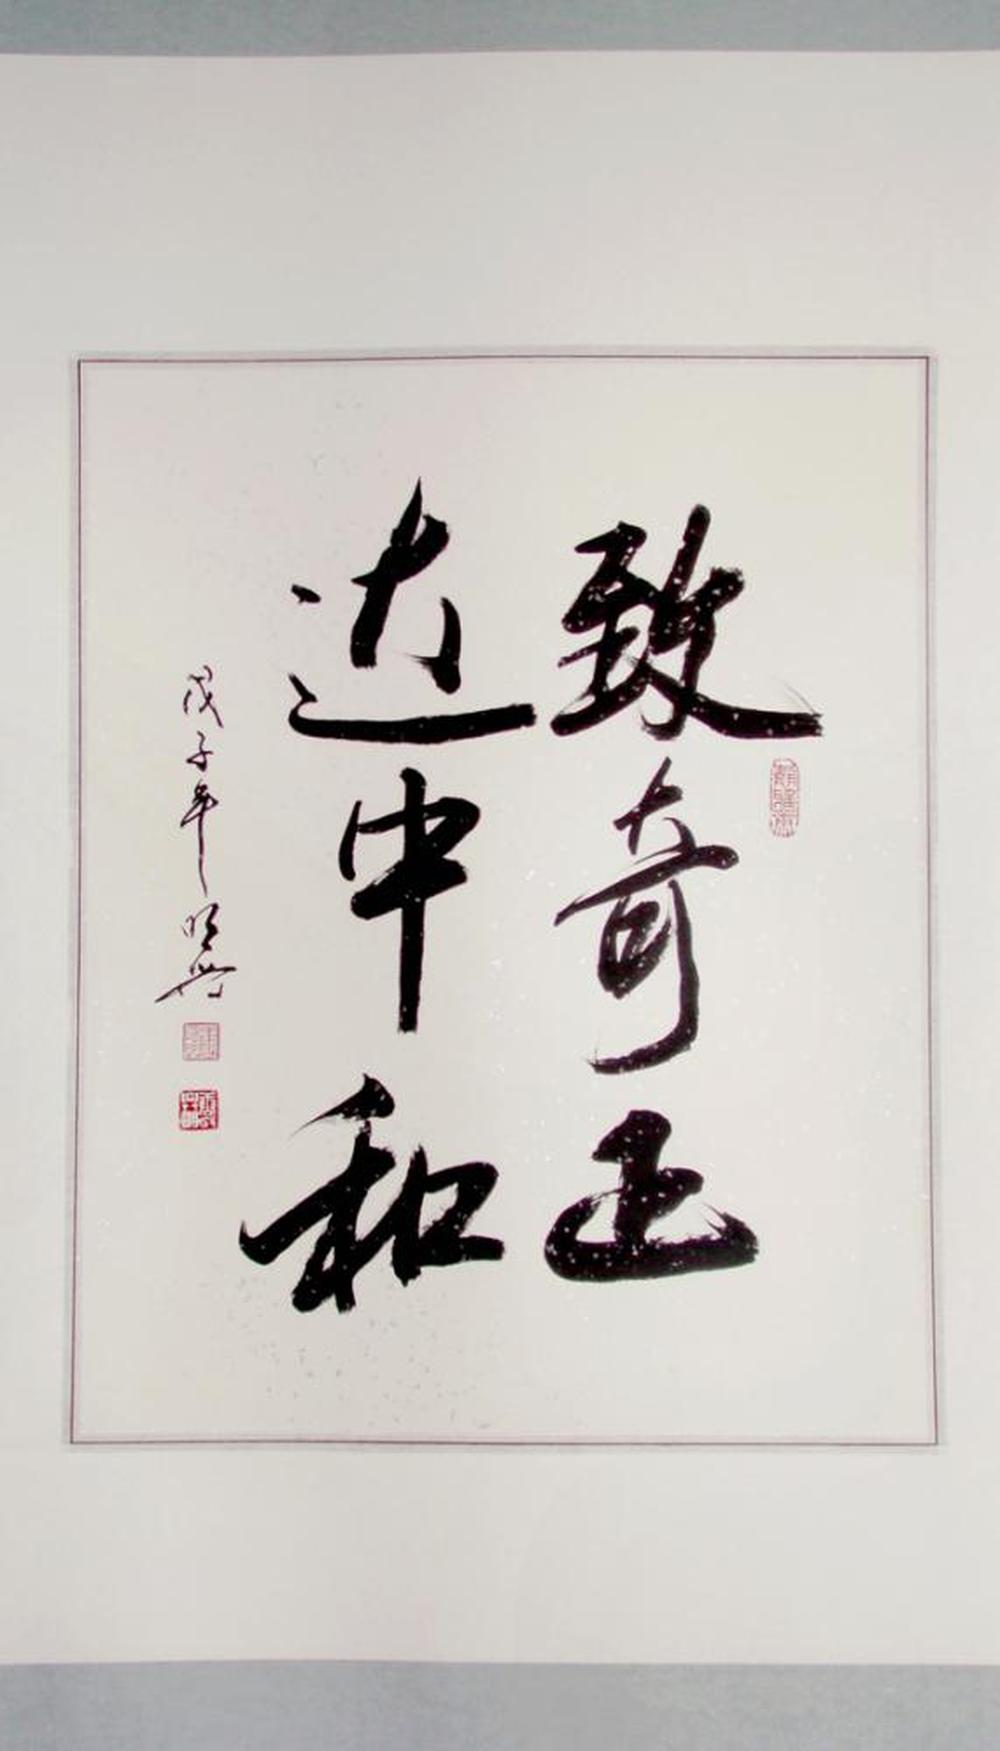 致奇正
达中和
戊子年